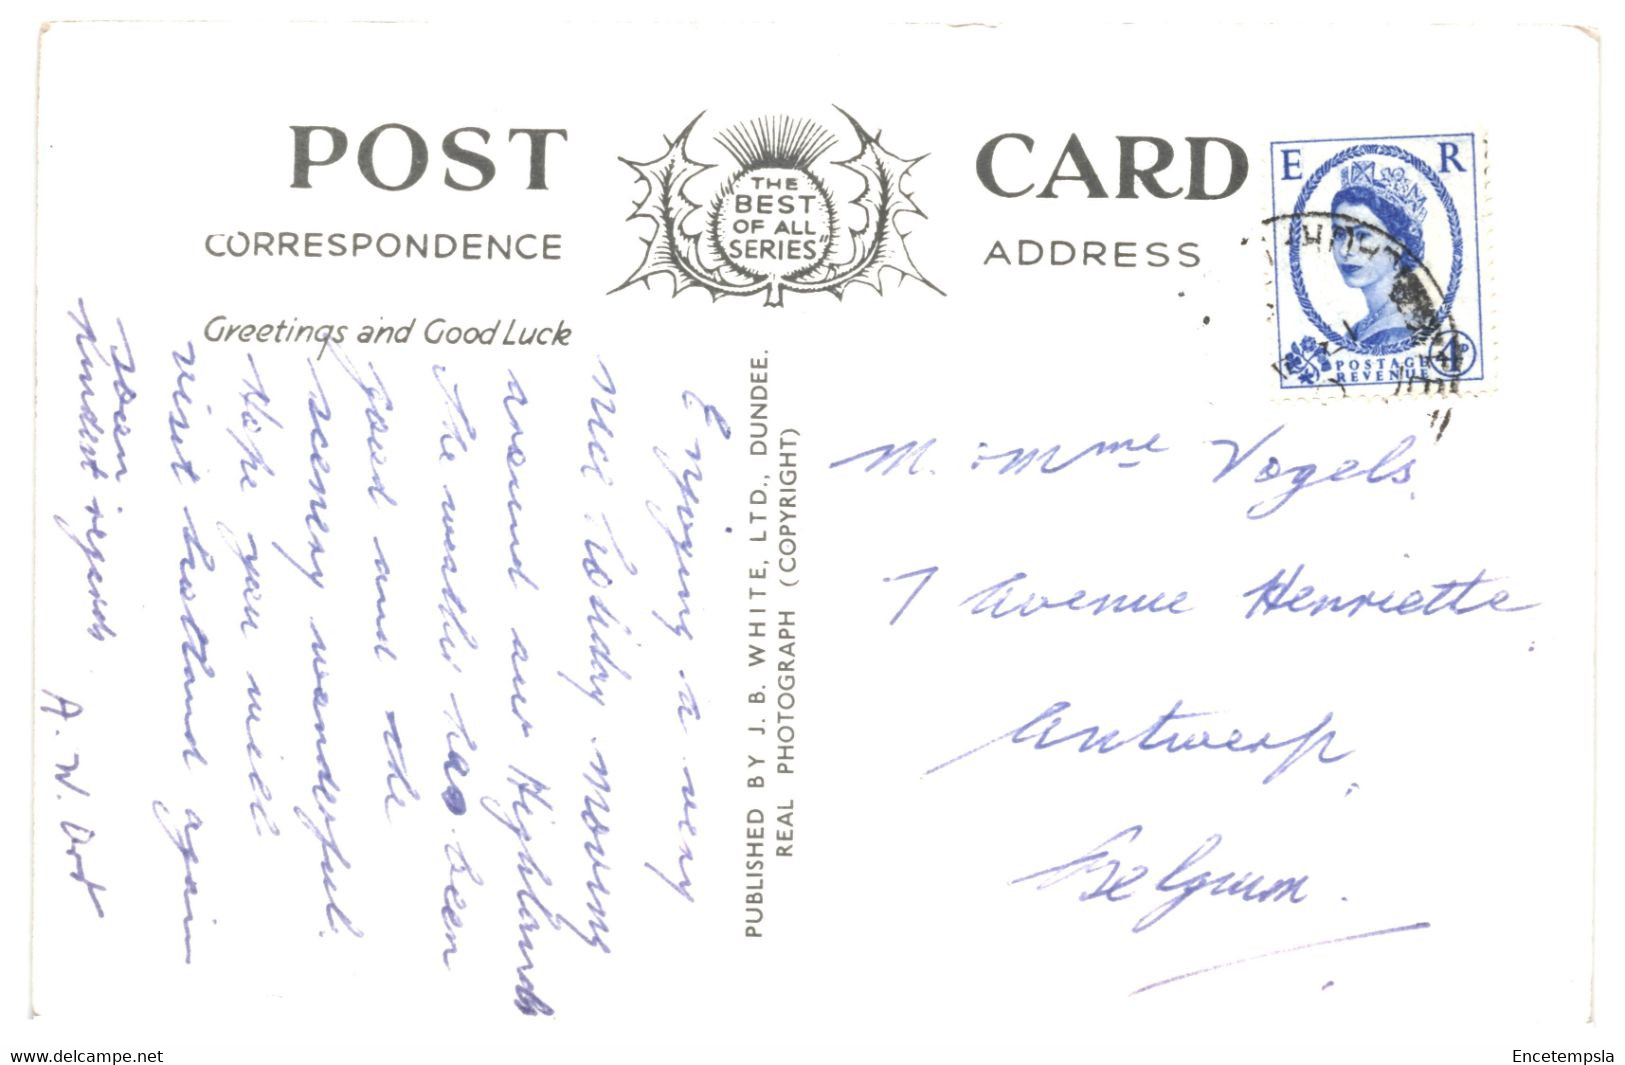 POST CARD
THE
BEST
OF ALL
SERIES"
CORRESPONDENCE
ADDRESS
Greetings and Good Luck
E R
POSTAGE
REVENUE
4D
Enjoying a very
nice holiday moving
around our Highlands
The weather has been
good and the
scenery wonderful.
Hope you will
visit Scotland again
soon
Kindest regards
A. W.
PUBLISHED BY J. B. WHITE, LTD., DUNDEE.
REAL PHOTOGRAPH (COPYRIGHT)
M. Mme Vogels
7 Avenue Henriette
Antwerp.
Belgium.
www.delcampe.net
Encetempsla